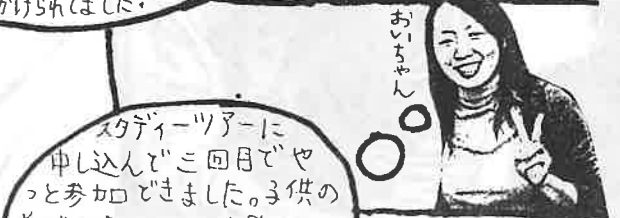 かけられてました。
おいちゃん
スタディーツアーに
申し込んで三回目でや
っと参加できました。子供の